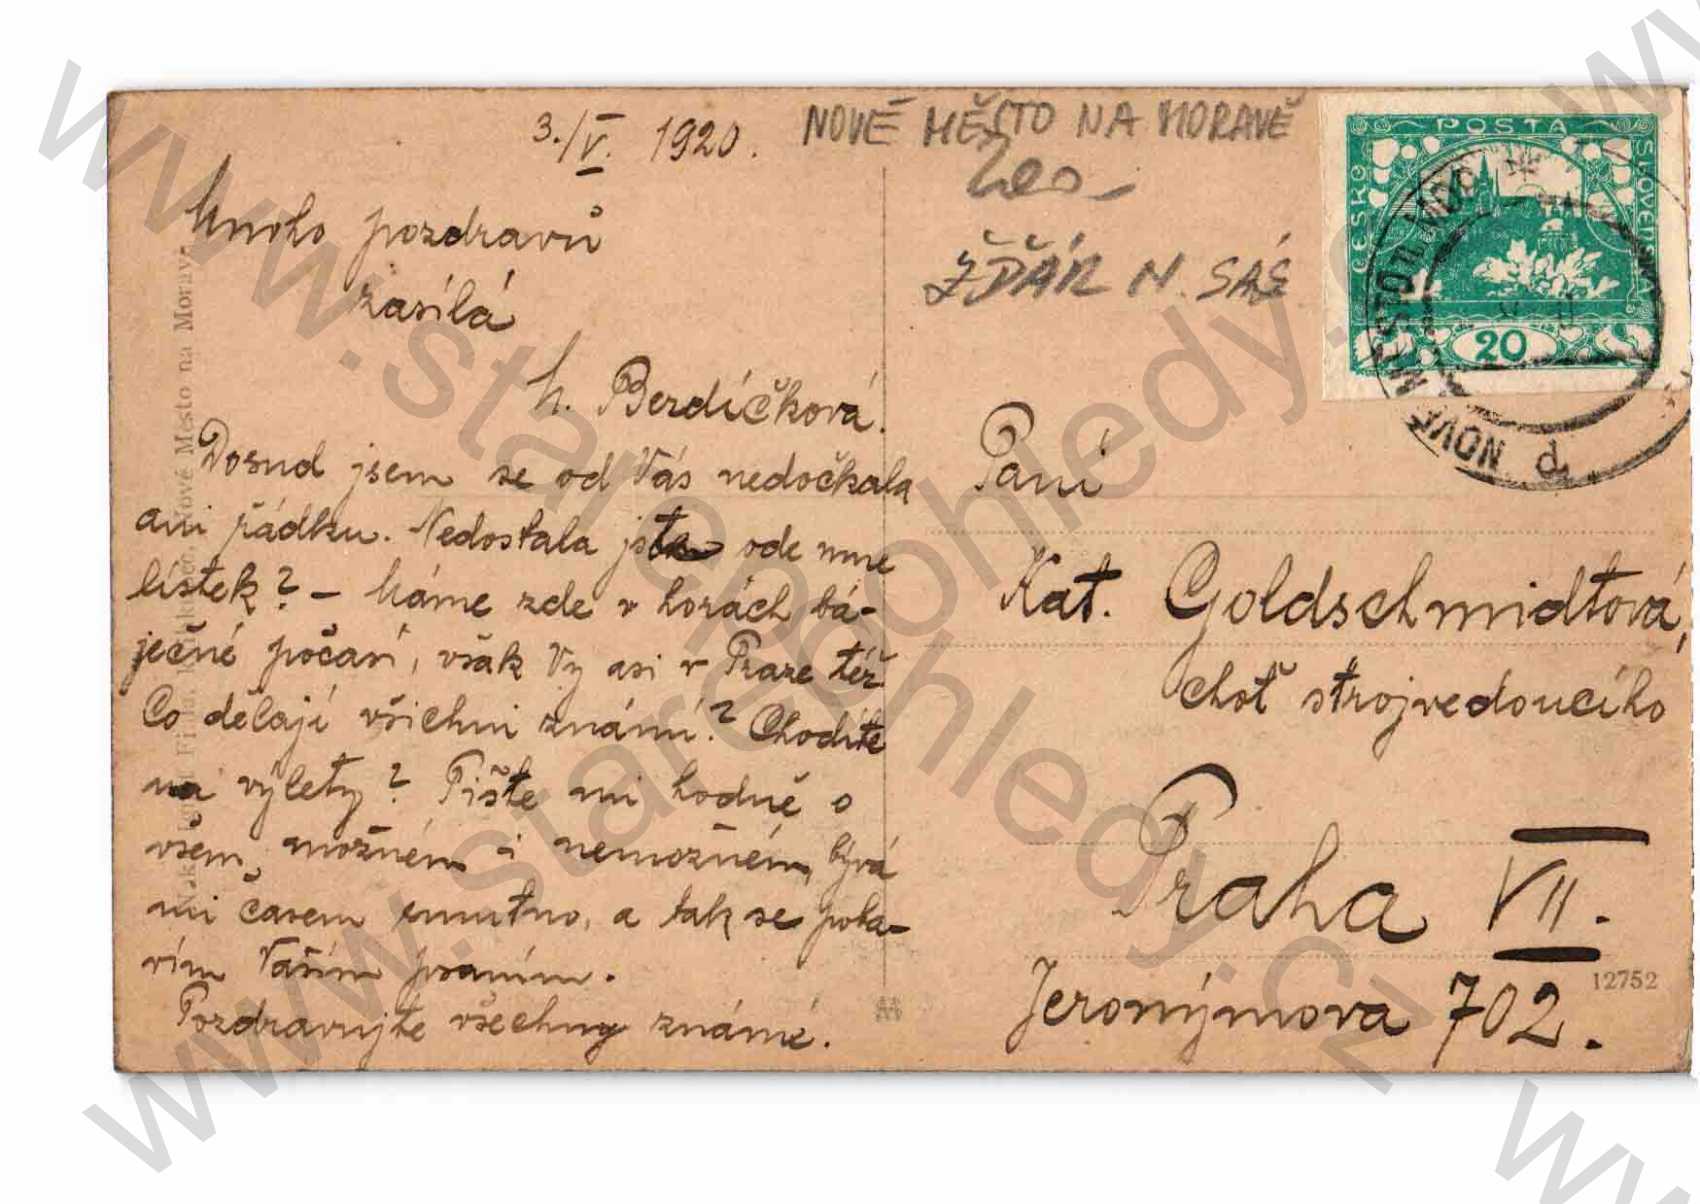 3./V. 1920.
NOVÉ MĚSTO NA MORAVĚ
200-
ŽĎÁR N. SÁZ
Mnoho pozdravů
zasílá
M. Berdíčková.
Dosud jsem se od Vás nedočkala
ani řádku. Nedostala jste ode mne
lístek? – Máme zde v horách bá-
ječné počasí, však Vy asi v Praze též
Co dělají všichni známí? Chodíte
na výlety? Pište mi hodně o
všem možném i nemožném, bývá
mi časem smutno, a tak se poba-
vím Vaším psaním.
Pozdravujte všechny známé.
POSTA
ČESKO
SLOVENSKÁ
20
NOVÉ MĚSTO
Paní
Kat. Goldschmidtová,
choť strojvedoucího
Praha VII.
Jeronýmova 702.
12752
Nové Město na Moravě
www.starepohledy.cz
www.starepohledy.cz